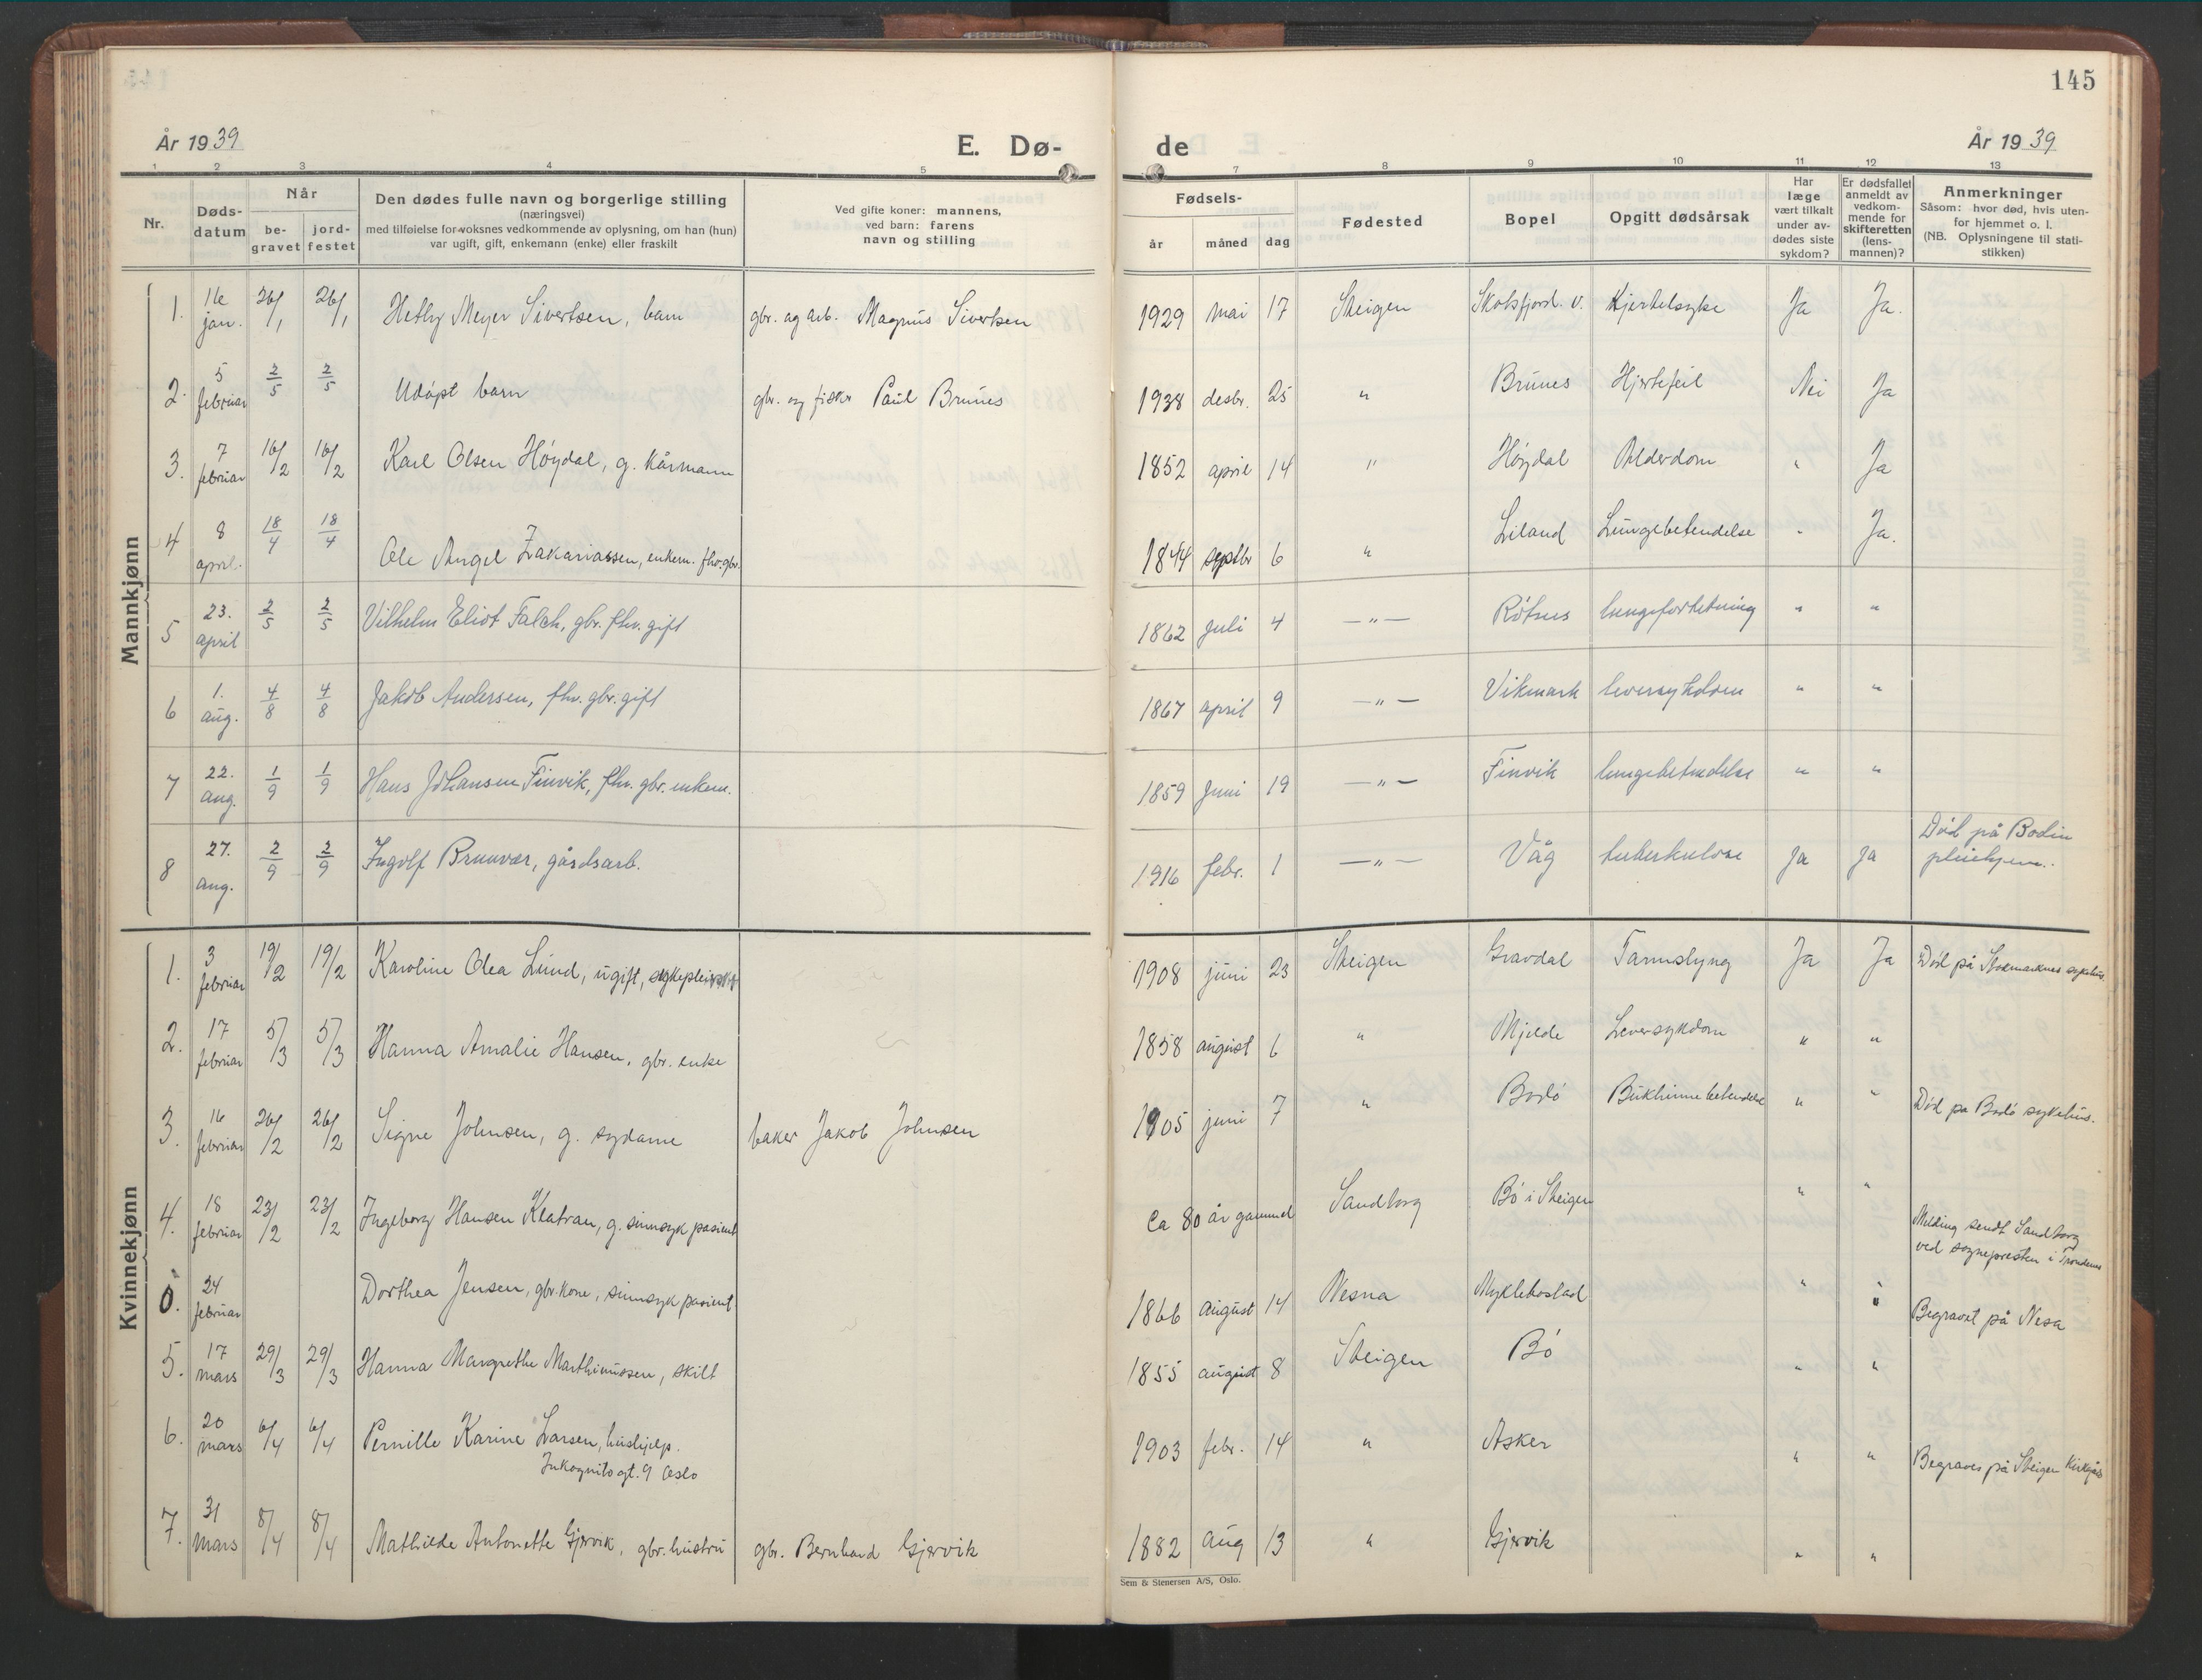 145
År 1939 E. Dø- de År 1939
1 2 3 4 5 7 8 9 10 11 12 13
Nr. Døds-datum Når be-gravet jord-festet
Den dødes fulle navn og borgerlige stilling
(næringsvei)
med tilføielse for voksnes vedkommende av oplysning, om han (hun)
var ugift, gift, enkemann (enke) eller fraskilt
Ved gifte koner: mannens,
ved barn: farens
navn og stilling
Fødsels-
år måned dag
Fødested
Bopel
Opgitt dødsårsak
Har
læge
vært tilkalt
under av-
dødes siste
sykdom?
Er dødsfallet
anmeldt av
vedkom-
mende for
skifteretten
(lens-
mannen)?
Anmerkninger
Såsom: hvor død, hvis uten-
for hjemmet o. l.
(NB. Oplysningene til stati-
stikken)
Mannkjønn
1. 16 jan. 26/1 26/1 Hetby Meyer Sivertsen, barn gbr. og arb. Magnus Sivertsen 1929 mai 17 Steigen Skotsfjord. v. Kjertelsyke Ja Ja.
2. 5 februar 2/5 2/5 Udøpt barn gbr. og fisker Paul Brunes 1938 desbr. 25 " Brunes Hjertefeil Nei Ja
3. 7 februar 16/2 16/2 Karl Olsen Høydal, g. kårmann 1852 april 14 " Høydal Alderdom " Ja
4 8 april. 18/4 18/4 Ole Angel Zakariassen, enkem. fhv. gbr. 1844 septbr 6 " Leland Lungebetendelse " Ja.
5 23. april 2/5 2/5 Vilhelm Eliot Falch, gbr. fhv. gift 1862 juli 4 —"— Røtnes lungefortetning " "
6 1. aug. 4/8 4/8 Jakob Andersen, fhv. gbr. gift 1867 april 9 —"— Vikmark leversykdom " "
7 22. aug. 1/9 1/9 Hans Johansen Finvik, fhv. gbr. enkem. 1859 juni 19 —"— Finvik lungebetendelse " "
8 27. aug. 2/9 2/9 Ingolf Brunvær, gårdsarb. 1916 febr. 1 —"— Våg tuberkulose Ja Ja Død på Bodin
pleiehjem.
Kvinnekjønn
1. 3 februar 19/2 19/2 Karoline Olea Lund, ugift, sykepleierske 1908 juni 23 Steigen Gravdal Tarmslyng Ja Ja Død på Stokmarknes sykehus.
2. 17 februar 5/3 5/3 Hanna Amalie Hansen, gbr. enke 1858 august 6 " Mjelde Leversykdom " "
3. 16 februar 26/2 26/2 Signe Johnsen, g. sydame baker Jakob Johnsen 1905 juni 7 " Bodø Bukhinnebetendelse " " Død på Bodø sykehus.
4. 18 februar 23/2 23/2 Ingeborg Hansen Klatran, g. sinnsyk pasient ca 80 år gammel Sandtorg Bø i Steigen " " Melding sendt Sandtorg
ved sognepresten i Trondenes
0. 24 februar Dorthea Jensen, gbr. kone, sinnsyk pasient 1866 august 14 Nesna Myklebostad " " Begravet på Nesa
5. 17 mars 29/3 29/3 Hanna Margrethe Marthinussen, skilt 1855 august 8 Steigen Bø " "
6. 20 mars 6/4 6/4 Pernille Karine Larsen, hushjelp.
Inkognitogt. 9 Oslo 1903 febr. 14 " Asker " " Begraves på Steigen kirkegård
7. 31 mars 8/4 8/4 Mathilde Antonette Gjervik, gbr. hustru gbr. Bernhard Gjervik 1882 aug 13 " Gjervik " "
Sem & Stenersen A/S, Oslo.